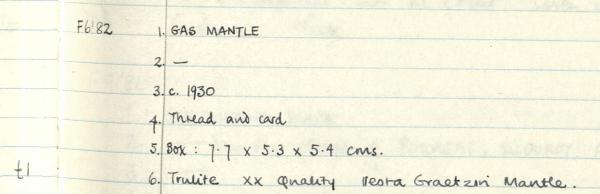 F6'82 1. GAS MANTLE
2. —
3. c. 1930
4. Thread and card
5. Box : 7.7 x 5.3 x 5.4 cms.
£1 6. Trulite xx Quality Vesta Graetzin Mantle.